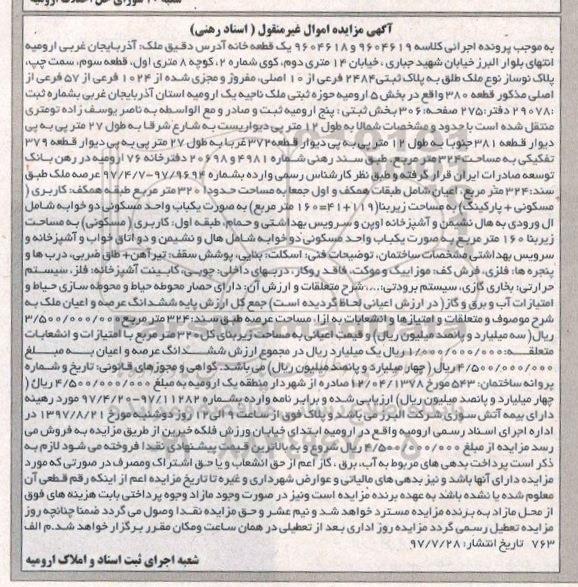 آگهی مزایده اموال غیرمنقول ( اسناد رهنی)
به موجب پرونده اجرائی کلاسه ۹۶۰۴۶۱۹ و ۹۶۰۴۶۱۸ یک قطعه خانه آدرس دقیق ملک: آذربایجان غربی ارومیه
انتهای بلوار البرز خیابان شهید جباری ، خیابان ۱۴ متری دوم، کوی شماره ۲، کوچه ۸ متری اول، قطعه سوم، سمت چپ،
پلاک نوساز نوع ملک طلق به پلاک ثبتی ۲۴۸۴ فرعی از ۱۰ اصلی، مفروز و مجزی شده از ۱۰۲۴ فرعی از ۵۷ فرعی از
اصلی مذکور قطعه ۳۸۰ واقع در بخش ۵ ارومیه حوزه ثبتی ملک ناحیه یک ارومیه استان آذربایجان غربی بشماره ثبت
:۲۹۰۷۸ دفتر: ۲۷۵ صفحه: ۳۰۶ بخش ثبتی: پنج ارومیه ثبت و صادر و مع الواسطه به ناصر یوسف زاده تومتری
منتقل شده است با حدود و مشخصات شمالا به طول ۱۲ متر پی دیواریست به شارع شرقا به طول ۲۷ متر پی به پی
دیوار قطعه ۳۸۱ جنوبا به طول ۱۲ متر پی به پی دیوار قطعه ۳۷۲ غربا به طول ۲۷ متر پی به پی دیوار قطعه ۳۷۹
تفکیکی به مساحت ۳۲۴ متر مربع، طبق سند رهنی شماره ۴۹۸۱ و ۲۰۶۹۸ دفترخانه ۷۶ ارومیه در رهن بانک
توسعه صادرات ایران قرار گرفته و طبق نظر کارشناس رسمی وارده بشماره ۹۶۹۴-۹۷/۴/۷ عرصه ملک طبق
سند: ۳۲۴ متر مربع، اعیان شامل طبقات همکف و اول جمعا به مساحت حدود ۳۲۰ متر مربع طبقه همکف: کاربری (
مسکونی + پارکینگ) به مساحت زیربنا (۱۱۹+۴۱=۱۶۰ متر مربع) به صورت یکباب واحد مسکونی دو خوابه شامل
ال ورودی به هال نشیمن و آشپزخانه اوپن و سرویس بهداشتی و حمام، طبقه اول: کاربری (مسکونی) به مساحت
زیربنا ۱۶۰ متر مربع به صورت یکباب واحد مسکونی دو خوابه شامل هال و نشیمن و دو اتاق خواب و آشپزخانه و
سرویس بهداشتی مشخصات ساختمان، توضیحات فنی: اسکلت: بنایی، پوشش سقف: تیرآهن+ طاق ضربی، درب ها و
پنجره ها: فلزی، فرش کف: موزاییک و موکت، فاقد روکار، دربهای داخلی: چوبی، کابینت آشپزخانه: فلز، سیستم
حرارتی: بخاری گازی، سیستم برودتی:....، شرح متعلقات و ارزش آن: دارای حصار محوطه حیاط و محوطه سازی حیاط و
امتیازات آب و برق و گاز( در ارزش اعیانی لحاظ گردیده است) جمع کل ارزش پایه ششدانگ عرصه و اعیان ملک به
شرح موصوف و متعلقات و امتیازها و انشعابات به ازاء مساحت عرصه طبق سند: ۳۲۴ متر مربع ۳/۵۰۰/۰۰۰/۰۰۰
ریال( سه میلیارد و پانصد میلیون ریال) و قیمت اعیانی به مساحت زیربنای کل ۳۲۰ متر مربع با امتیازات و انشعابات
متعلقه: ۱/۰۰۰/۰۰۰/۰۰۰ ریال یک میلیارد ریال در مجموع ارزش ششدانگ عرصه و اعیان به مبلغ
۴/۵۰۰/۰۰۰/۰۰۰ ریال ( چهار میلیارد و پانصدمیلیون ریال) می باشد. گواهی و مجوزهای قانونی: تاریخ و شماره
پروانه ساختمان: ۵۴۳ مورخ ۱۲/۰۴/۱۳۷۸ صادره از شهردار منطقه یک ارومیه به مبلغ ۴/۵۰۰/۰۰۰/۰۰۰ ریال (
چهار میلیارد و پانصد میلیون ریال) ارزیابی شده و برابر نامه وارده بشماره ۱۱۲۸۲-۹۷/۴/۲۰ مورد رهینه
دارای بیمه آتش سوزی شرکت البرز می باشد و پلاک فوق از ساعت ۹ الی ۱۲ روز دوشنبه مورخ ۱۳۹۷/۸/۲۱ در
اداره اجرای اسناد رسمی ارومیه واقع در ارومیه ابتدای خیابان ورزش فلکه خبرین از طریق مزایده به فروش می
رسد مزایده از مبلغ ۴/۵۰۰/۰۰۰/۰۰۰ ریال شروع و به بالاترین قیمت پیشنهادی نقدا فروخته می شود لازم به
ذکر است پرداخت بدهی های مربوط به آب، برق ، گاز اعم از حق انشعاب و یا حق اشتراک و مصرف در صورتی که مورد
مزایده دارای آنها باشد و نیز بدهی های مالیاتی و عوارض شهرداری و غیره تا تاریخ مزایده اعم از اینکه رقم قطعی آن
معلوم شده یا نشده باشد به عهده برنده مزایده است ونیز در صورت وجود مازاد وجوه پرداختی بابت هزینه های فوق
از محل مازاد به برنده مزایده مسترد خواهد شد و نیم عشر و حق مزایده نقدا وصول می گردد ضمنا چنانچه روز
مزایده تعطیل رسمی گردد مزایده روز اداری بعد از تعطیلی در همان ساعت ومکان مقرر برگزار خواهد شد.م الف
۷۶۳ تاریخ انتشار: ۹۷/۷/۲۸
شعبه اجرای ثبت اسناد و املاک ارومیه